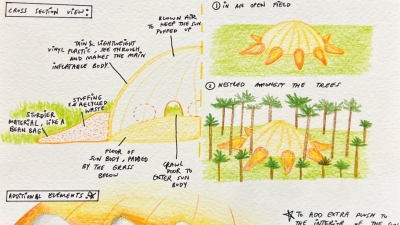 CROSS SECTION VIEW:
BLOWN AIR
TO KEEP THE SUN
PUFFED UP
THIN & LIGHTWEIGHT
VINYL PLASTIC, SEE THROUGH,
AND MAKES THE MAIN
INFLATABLE BODY.
STUFFING
RECYCLED
WASTE
STURDIER
MATERIAL, LIKE A
BEAN BAG
FLOOR OF
SUN BODY, PADDED
BY THE GRASS
BELOW
CRAWL
DOOR TO
ENTER SUN
BODY
1 IN AN OPEN FIELD
2 NESTLED AMONGST THE TREES
ADDITIONAL ELEMENTS:
TO ADD EXTRA PLUSH TO
THE INTERIOR OF THE SUN